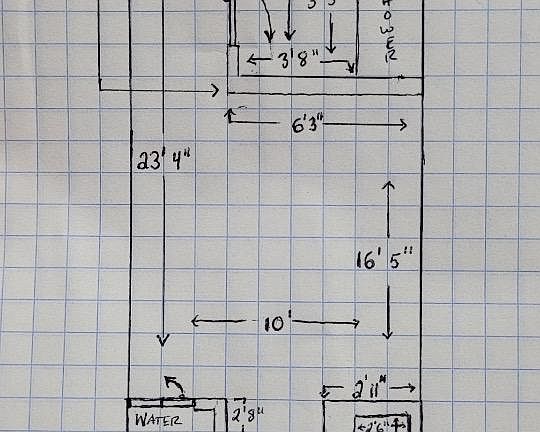 HOWER
3'8"
6'3"
23' 4"
16' 5"
10'
2'11"
WATER
2'8"
2'6"